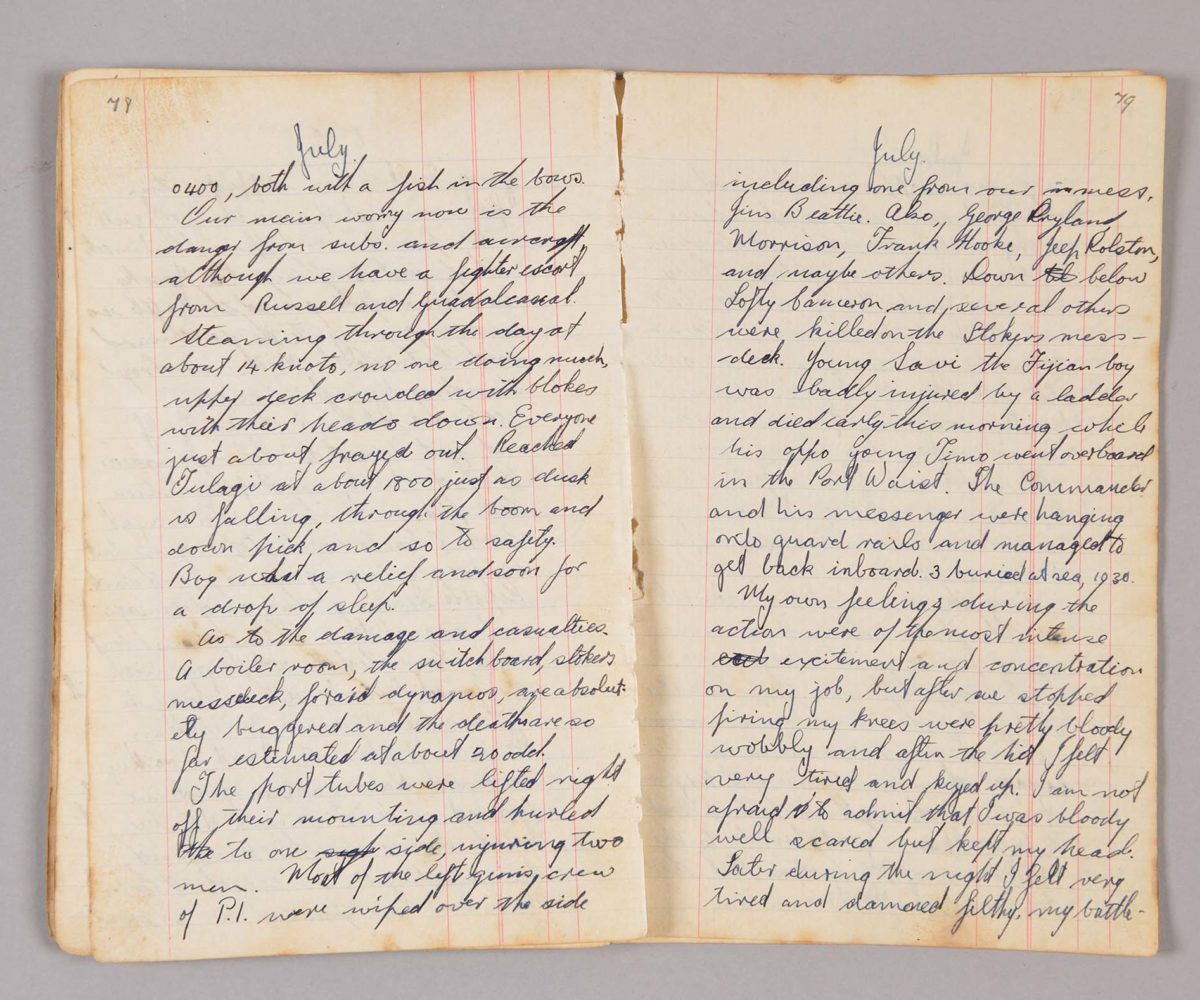 78
July.
0400, both with a fish in the bows.
Our main worry now is the
danger from subs. and aircraft,
although we have a fighter escort,
from Russell and Guadalcanal.
Steaming through the day at
about 14 knots, no one doing much,
upper deck crowded with blokes
with their heads down. Everyone
just about fragged out. Reached
Tulagi at about 1800 just as dusk
is falling, through the boom and
down pick, and so to safety.
Boy what a relief and soon for
a drop of sleep.
As to the damage and casualties.
A boiler room, the switchboard, stokers
messdeck, for'ard dynamos, are absolut-
ely buggered and the death are so
far estimated at about 20 odd.
The port tubes were lifted right
off their mounting and hurled
the to one side, injuring two
men. Most of the left guns crew
of P.1. were wiped over the side
79
July.
including one from our mess.
Jim Beattie. Also, George Ryland,
Morrison, Frank Hooke, Jeep Rolston,
and maybe others. Down below
Lofty Cameron and several others
were killed on the Stokers mess-
deck. Young Savi the Fijian boy
was badly injured by a ladder
and died early this morning while
his oppo young Timo went overboard
in the Port Waist. The Commander
and his messenger were hanging
onto guard rails and managed to
get back inboard. 3 buried at sea, 1930.
My own feelings during the
action were of the most intense
excitement and concentration
on my job, but after we stopped
firing my knees were pretty bloody
wobbly and after the hit I felt
very tired and keyed up. I am not
afraid to admit that I was bloody
well scared but kept my head.
Later during the night I felt very
tired and damned filthy, my battle-